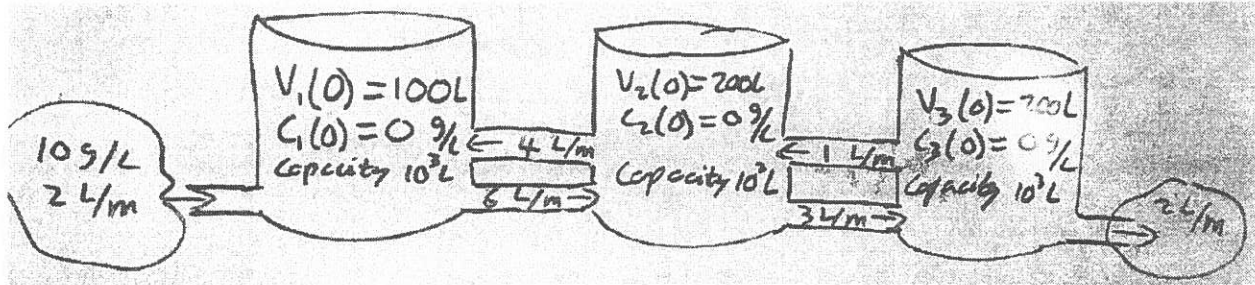 10 g/L
2 L/m
V₁(0) = 100L
C₁(0) = 0 g/L
Capacity 10³L
← 4 L/m
6 L/m →
V₂(0) = 200L
C₂(0) = 0 g/L
Capacity 10³L
← 1 L/m
3 L/m →
V₃(0) = 200L
C₃(0) = 0 g/L
Capacity 10³L
2 L/m